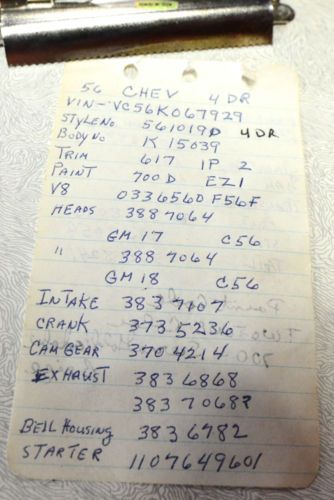 56 CHEV 4 DR
VIN - VC56K067929
STYLE No 561019D 4 DR
BODY No K 15039
TRIM 617 1P 2
PAINT 700 D EZ1
V8 0336560 F56F
HEADS 388 7064
GM 17 C56
" 388 7064
GM 18 C56
INTAKE 383 7107
CRANK 373 5236
CAM GEAR 370 4214
EXHAUST 383 6868
383 7068?
BELL HOUSING 383 6782
STARTER 1107649601